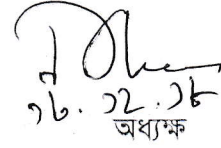 ১৮. ১২. ১৮
অধ্যক্ষ